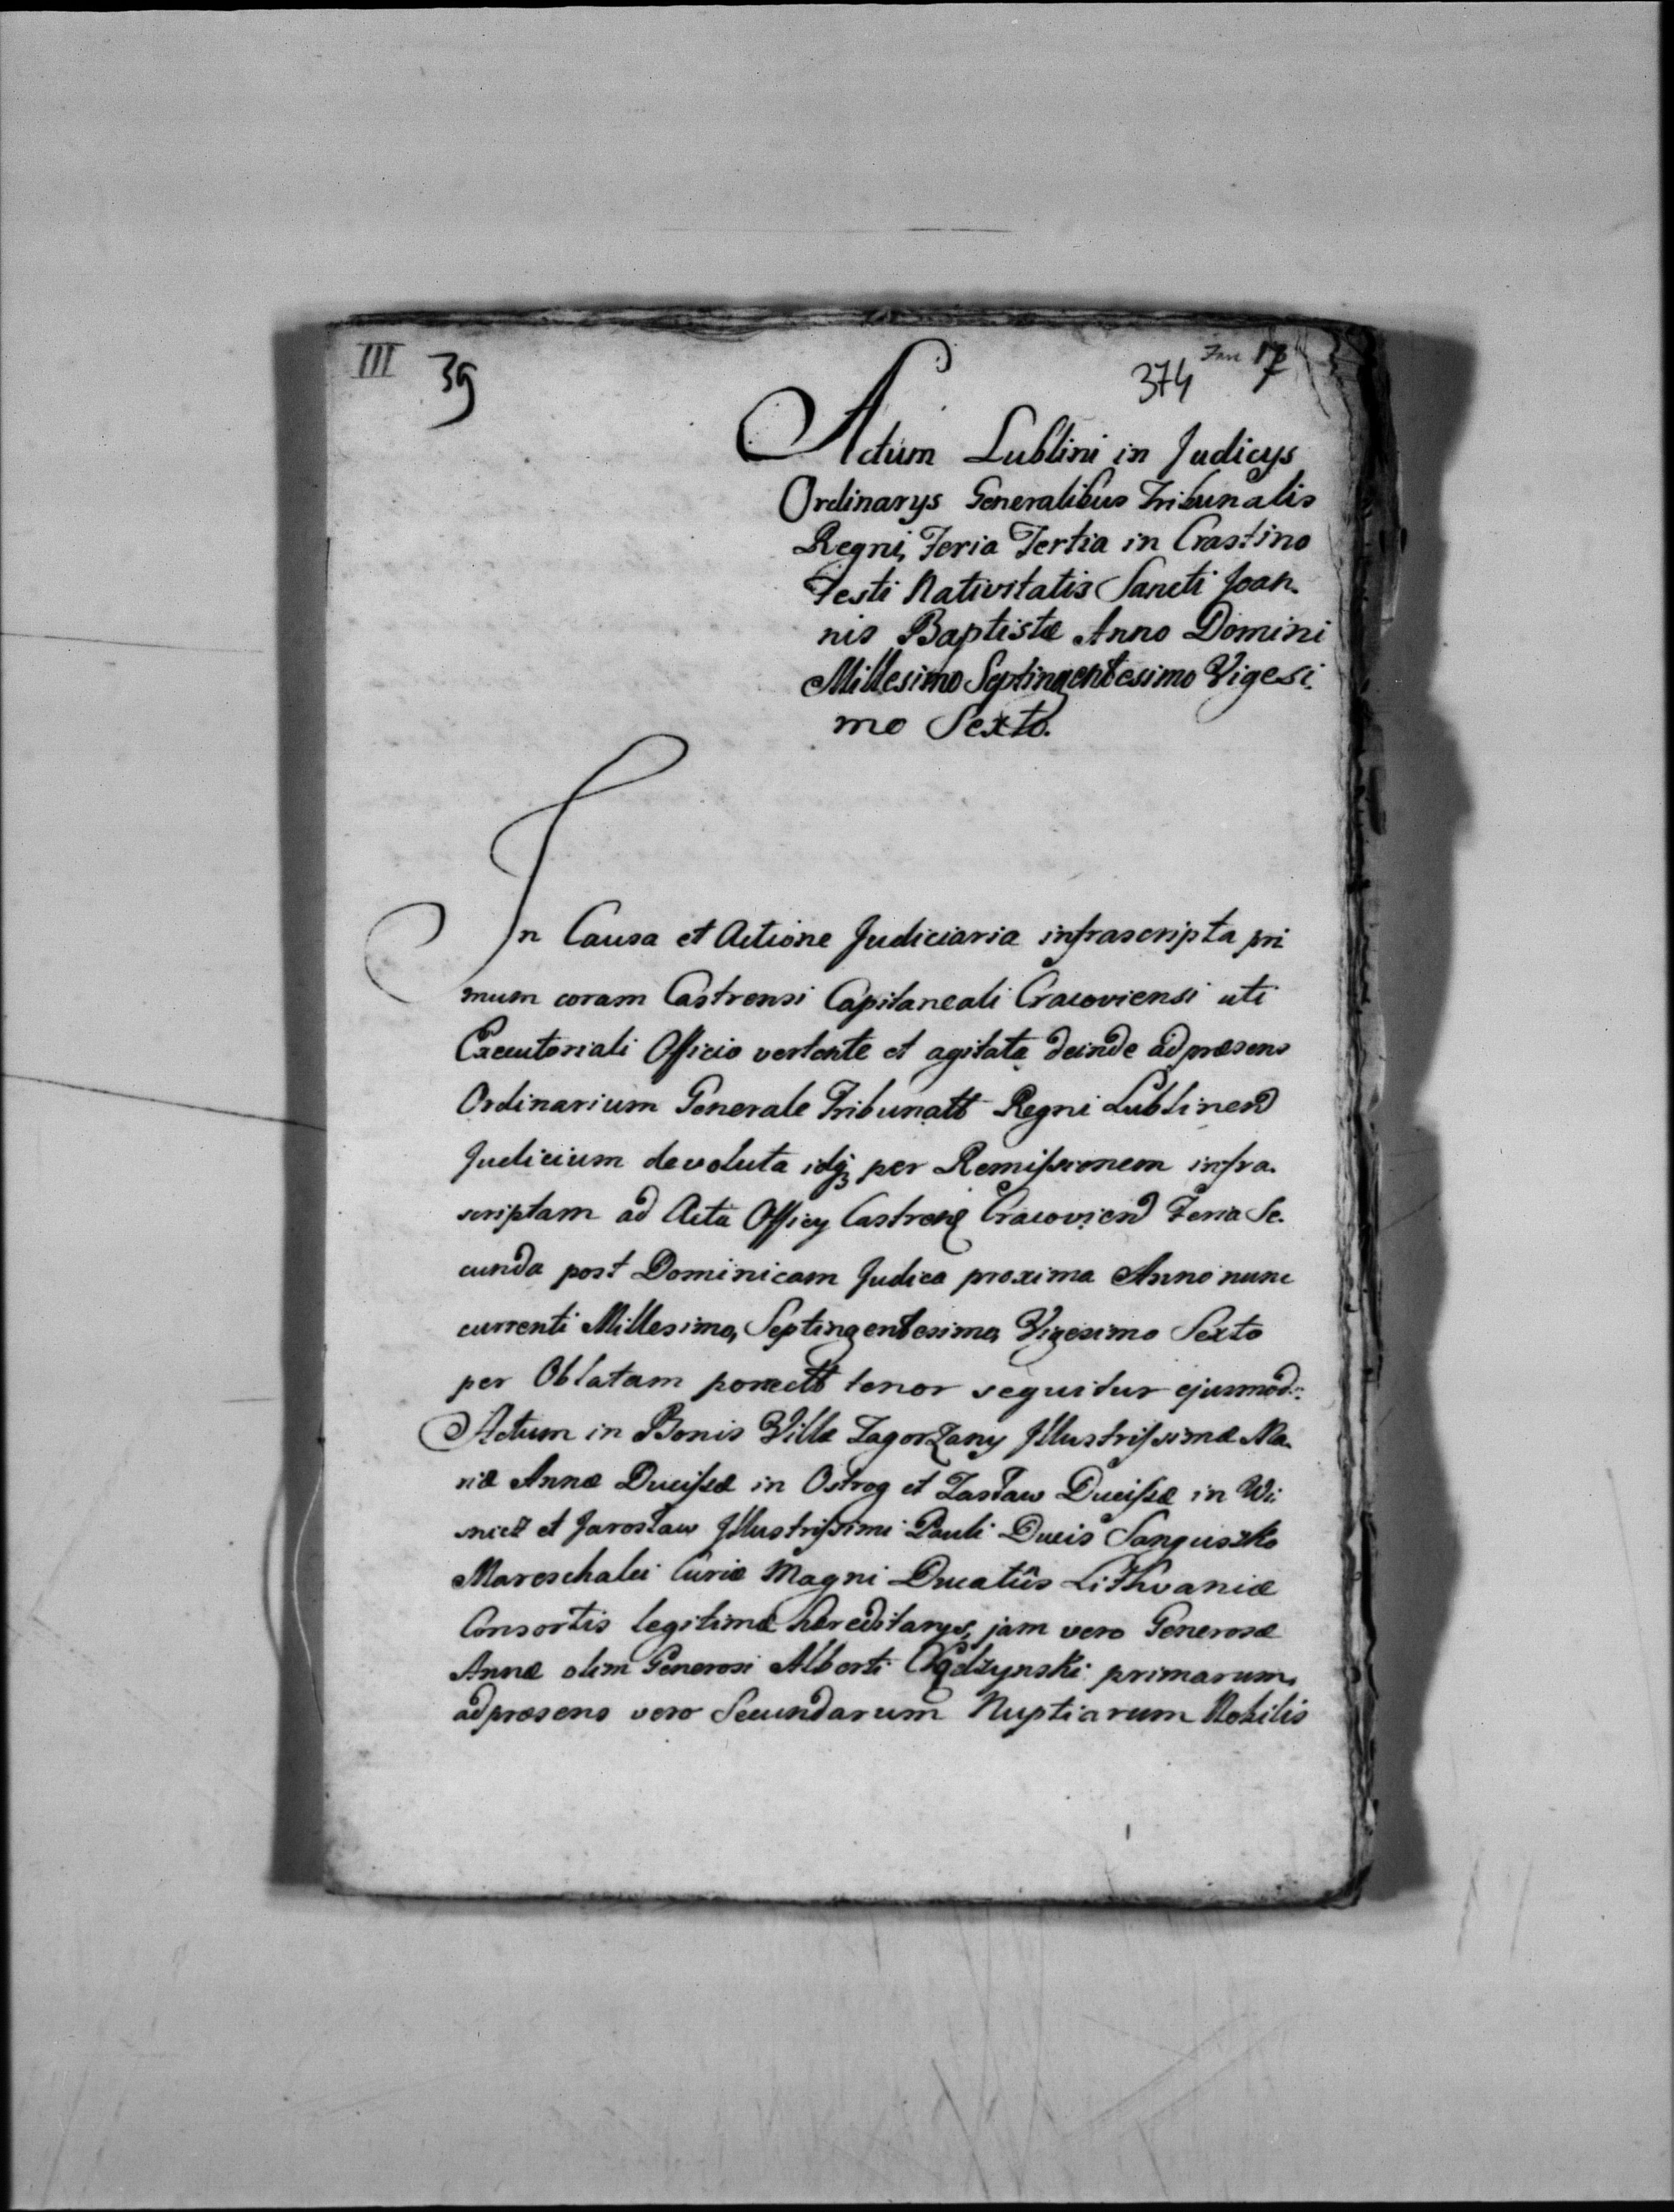 III 39 374 17
Actum Lublini in Judicys
Ordinarys Generalibus Tribunalis
Regni, Feria Tertia in Crastino
Festi Nativitatis Sancti Joan.
nis Baptistæ Anno Domini
Millesimo Septingentesimo Vigesi.
mo Sexto.
In Causa et Actione Judiciaria infrascripta pri
mum coram Castrensi Capitaneali Cracoviensi uti
Executoriali Officio vertente et agitata deinde ad præsens
Ordinarium Generale Tribunalt Regni Lublinen
Judicium devoluta idq per Remissionem infra.
scriptam ad Acta Officy Castren Cracovien Feria Se.
cunda post Dominicam Judica proxima Anno nunc
currenti Millesimo, Septingentesimo, Vigesimo Sexto
per Oblatam porrect tenor sequitur ejusmod:
Actum in Bonis Villæ Zagorzany Illustrissimæ Ma.
riæ Annæ Ducissæ in Ostrog et Zasław Ducissæ in Wi:
snicz et Jarosław Illustrissimi Pauli Ducis Sanguszko
Mareschalci Curiæ Magni Ducatûs Lithvaniæ
Consortis legitimæ hæreditarys, jam vero Generosæ
Annæ olim Generosi Alberti primarum,
ad præsens vero Secundarum Nuptiarum Nobilis